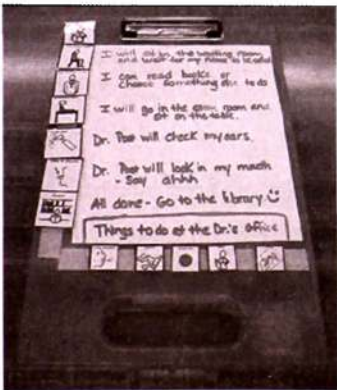 I will sit in the waiting room
and wait for my name to be called
I can read books or
choose something else to do
I will go in the exam room and
sit on the table.
Dr. Post will check my ears.
Dr. Post will look in my mouth
- Say ahhh
All done - Go to the library
Things to do at the Dr.'s office